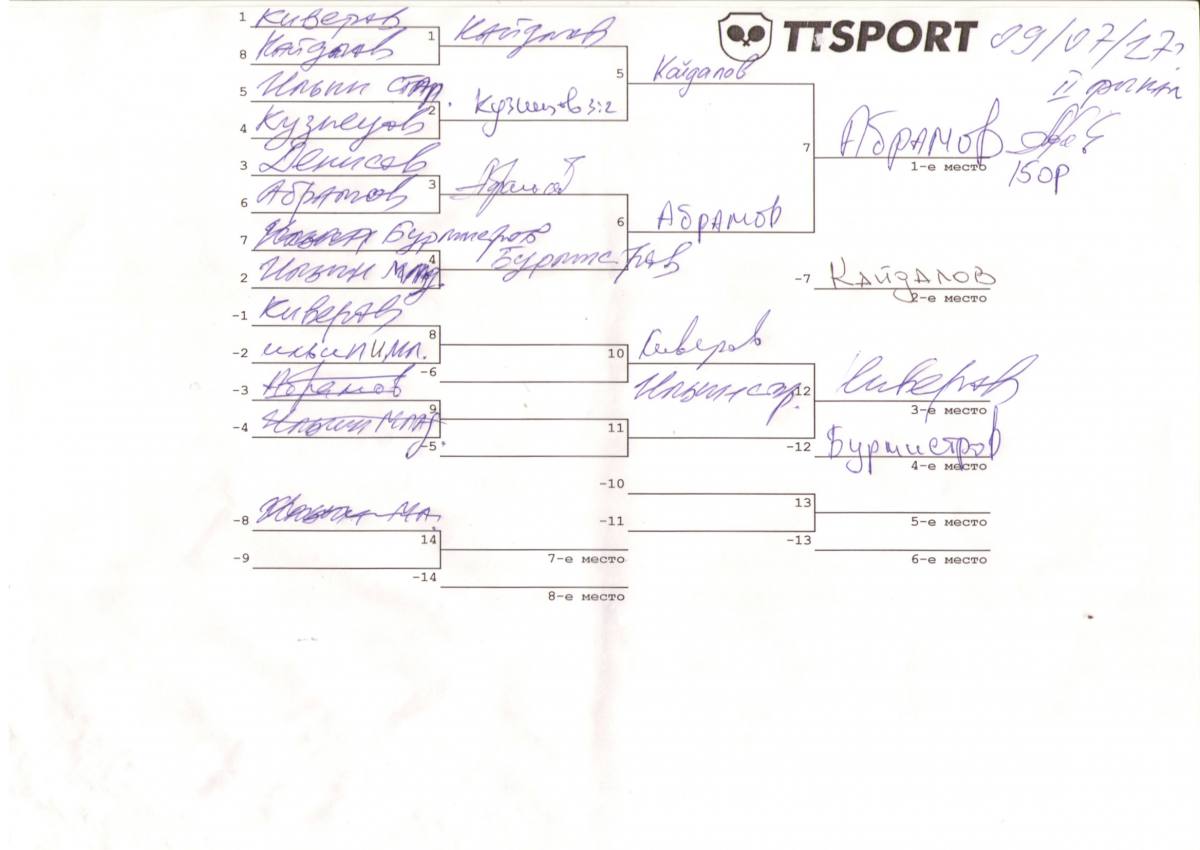 TTSPORT 09/07/17г.
II финал
1 Киверов
8 Кайдалов
1 Кайдалов
5 Ильин стар.
4 Кузнецов
2 Кузнецов 3:2
5 Кайдалов
3 Денисов
6 Абрамов
3 Абрамов
7 Бурмистров
2 Ильин млад.
4 Бурмистров
6 Абрамов
7 Абрамов
1-е место
150р
-7 Кайдалов
2-е место
-1 Киверов
-2 Ильин мл.
8
-6
10 Киверов
-3 Абрамов
-4 Ильин млад.
9
-5
11 Ильин стар.
12 Киверов
3-е место
-12 Бурмистров
4-е место
-10
-11
13
5-е место
-13
6-е место
-8 Ильин мл.
-9
14
7-е место
-14
8-е место